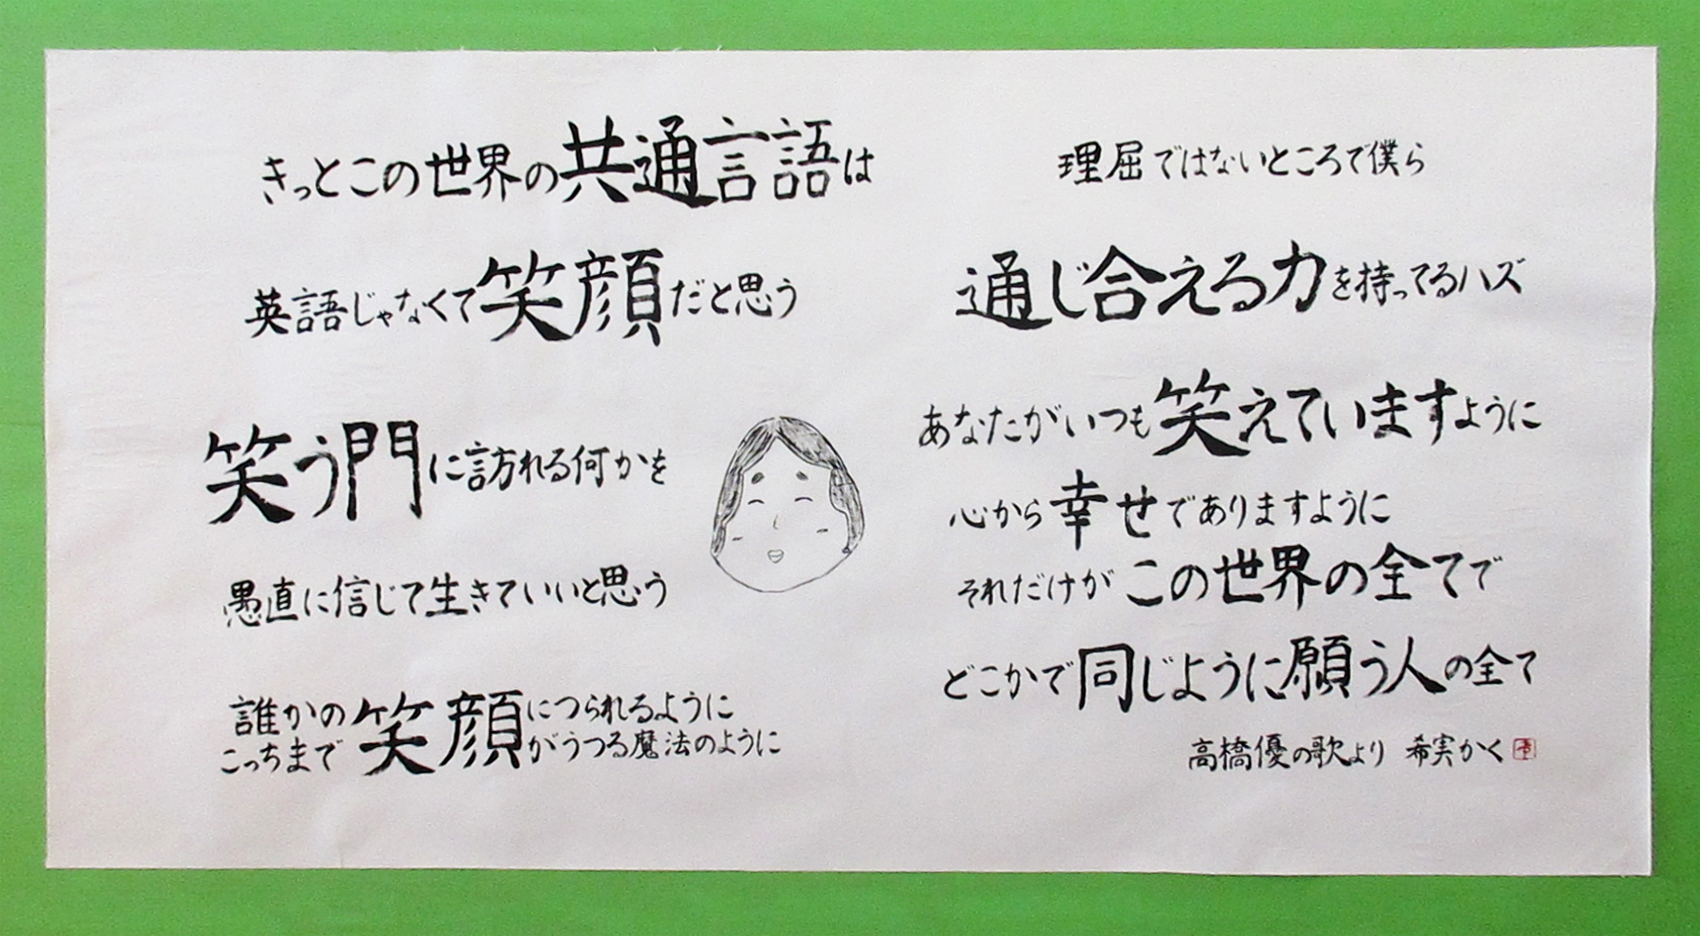 きっとこの世界の共通言語は
英語じゃなくて笑顔だと思う
笑う門に訪れる何かを
愚直に信じて生きていいと思う
誰かの笑顔につられるように
こっちまで笑顔がうつる魔法のように
理屈ではないところで僕ら
通じ合える力を持ってるハズ
あなたがいつも笑えていますように
心から幸せでありますように
それだけがこの世界の全てで
どこかで同じように願う人の全て
高橋優の歌より 希実かく